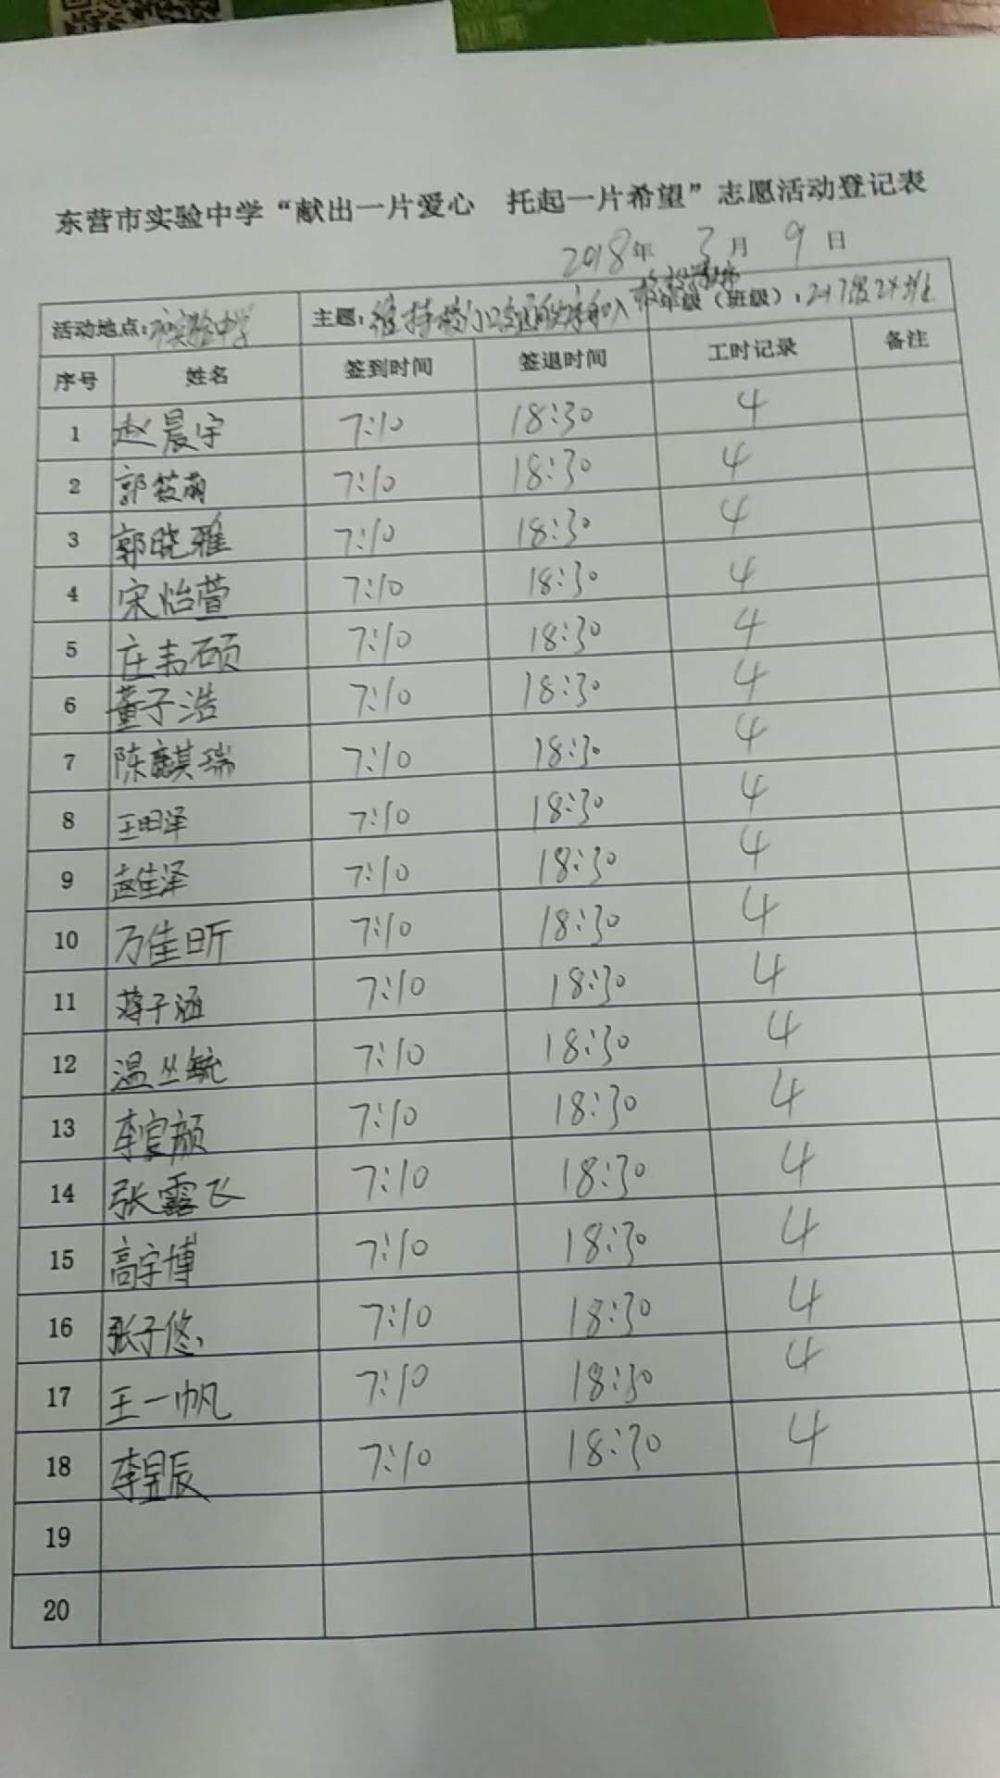 东营市实验中学“献出一片爱心 托起一片希望”志愿活动登记表
2018年 3月 9日
活动地点:市实验中学 主题:维持校门口交通秩序和入校 年级(班级):2017级24班
序号 姓名 签到时间 签退时间 工时记录 备注
1 赵晨宇 7:10 18:30 4
2 郭筱萌 7:10 18:30 4
3 郭晓雅 7:10 18:30 4
4 宋怡萱 7:10 18:30 4
5 庄韦硕 7:10 18:30 4
6 董子浩 7:10 18:30 4
7 陈麒瑞 7:10 18:30 4
8 王田泽 7:10 18:30 4
9 赵佳泽 7:10 18:30 4
10 万佳昕 7:10 18:30 4
11 蒋子涵 7:10 18:30 4
12 温丛毓 7:10 18:30 4
13 李官颜 7:10 18:30 4
14 张露飞 7:10 18:30 4
15 高宇博 7:10 18:30 4
16 张子悠 7:10 18:30 4
17 王一帆 7:10 18:30 4
18 李昱辰 7:10 18:30 4
19
20